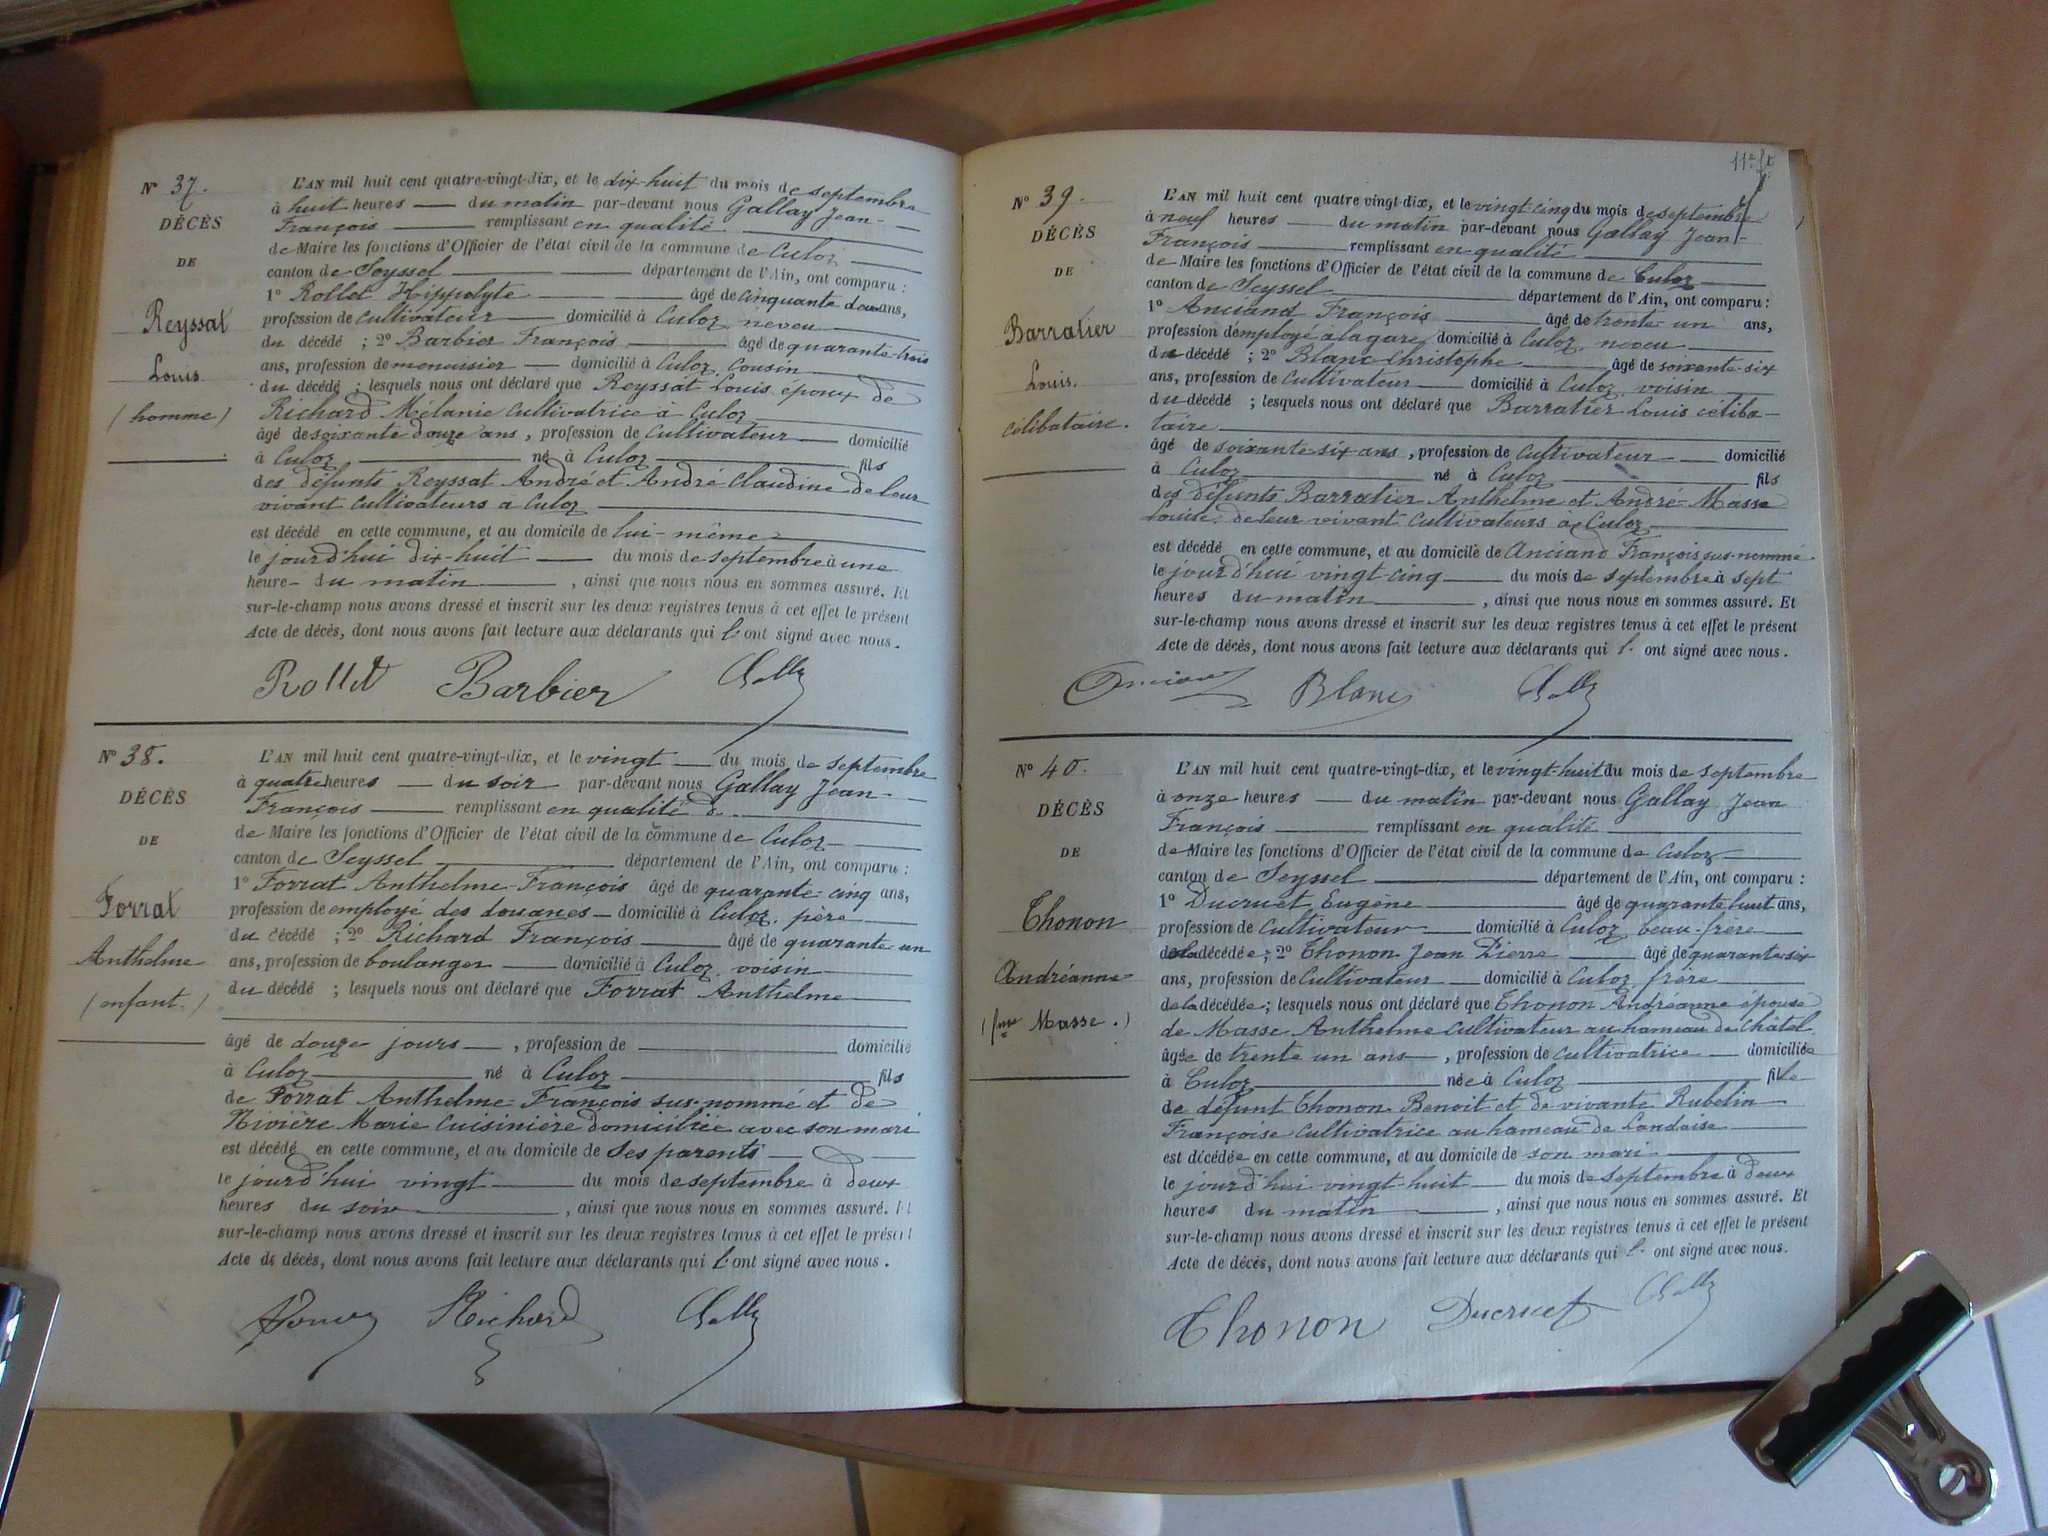 Nº 37.
DÉCÈS
DE
Reyssat
Louis
(homme)
L'AN mil huit cent quatre-vingt-dix, et le dix-huit du mois de septembre
à huit heures du matin par-devant nous Gallay Jean-
François remplissant en qualité
de Maire les fonctions d'Officier de l'état civil de la commune de Culoz
canton de Seyssel département de l'Ain, ont comparu :
1º Rollet Hippolyte âgé de cinquante deux ans,
profession de cultivateur domicilié à Culoz neveu
du décédé ; 2º Barbier François âgé de quarante-trois
ans, profession de menuisier domicilié à Culoz, cousin
du décédé ; lesquels nous ont déclaré que Reyssat Louis époux de
Richard Mélanie cultivatrice à Culoz
âgé de soixante douze ans, profession de cultivateur domicilié
à Culoz né à Culoz fils
des défunts Reyssat André et André Claudine de leur
vivant cultivateurs à Culoz
est décédé en cette commune, et au domicile de lui-même
le jourd'hui dix-huit du mois de septembre à une
heure du matin, ainsi que nous nous en sommes assuré. Et
sur-le-champ nous avons dressé et inscrit sur les deux registres tenus à cet effet le présent
Acte de décès, dont nous avons fait lecture aux déclarants qui l'ont signé avec nous.
Rollet Barbier Gally
Nº 38.
DÉCÈS
DE
Forrat
Anthelme
(enfant)
L'AN mil huit cent quatre-vingt-dix, et le vingt du mois de septembre
à quatre heures du soir par-devant nous Gallay Jean-
François remplissant en qualité d
de Maire les fonctions d'Officier de l'état civil de la commune de Culoz
canton de Seyssel département de l'Ain, ont comparu :
1º Forrat Anthelme-François âgé de quarante-cinq ans,
profession de employé des douanes domicilié à Culoz, père
du décédé ; 2º Richard François âgé de quarante-un
ans, profession de boulanger domicilié à Culoz, voisin
du décédé ; lesquels nous ont déclaré que Forrat Anthelme
âgé de douze jours, profession de domicilié
à Culoz né à Culoz fils
de Forrat Anthelme-François sus-nommé et de
Rivière Marie cuisinière domiciliée avec son mari
est décédé en cette commune, et au domicile de ses parents
le jourd'hui vingt du mois de septembre à deux
heures du soir, ainsi que nous nous en sommes assuré. Et
sur-le-champ nous avons dressé et inscrit sur les deux registres tenus à cet effet le présent
Acte de décès, dont nous avons fait lecture aux déclarants qui l'ont signé avec nous.
Richard Gally
11e
Nº 39.
DÉCÈS
DE
Barratier
Louis.
célibataire.
L'AN mil huit cent quatre-vingt-dix, et le vingt-cinq du mois de septembre
à neuf heures du matin par-devant nous Gallay Jean-
François remplissant en qualité
de Maire les fonctions d'Officier de l'état civil de la commune de Culoz
canton de Seyssel département de l'Ain, ont comparu :
1º Anciand François âgé de trente-un ans,
profession d'employé à la gare domicilié à Culoz, neveu
du décédé ; 2º Blanc Christophe âgé de soixante-six
ans, profession de cultivateur domicilié à Culoz voisin
du décédé ; lesquels nous ont déclaré que Barratier Louis céliba-
taire
âgé de soixante six ans, profession de cultivateur domicilié
à Culoz né à Culoz fils
des défunts Barratier Anthelme et André-Masse
Louise de leur vivant cultivateurs à Culoz
est décédé en cette commune, et au domicile de Anciand François sus-nommé
le jourd'hui vingt cinq du mois de septembre à sept
heures du matin, ainsi que nous nous en sommes assuré. Et
sur-le-champ nous avons dressé et inscrit sur les deux registres tenus à cet effet le présent
Acte de décès, dont nous avons fait lecture aux déclarants qui l'ont signé avec nous.
Blanc Gally
Nº 40.
DÉCÈS
DE
Thonon
Andréanne
(fme Masse.)
L'AN mil huit cent quatre-vingt-dix, et le vingt-huit du mois de septembre
à onze heures du matin par-devant nous Gallay Jean
François remplissant en qualité
de Maire les fonctions d'Officier de l'état civil de la commune de Culoz
canton de Seyssel département de l'Ain, ont comparu :
1º Ducruet Eugène âgé de quarante huit ans,
profession de cultivateur domicilié à Culoz beau-frère
de la décédée ; 2º Thonon Jean Pierre âgé de quarante six
ans, profession de cultivateur domicilié à Culoz frère
de la décédée ; lesquels nous ont déclaré que Thonon Andréanne épouse
de Masse Anthelme cultivateur au hameau de Châtel
âgée de trente un ans, profession de cultivatrice domiciliée
à Culoz née à Culoz fille
de défunt Thonon Benoit et de vivante Rubelin
Françoise cultivatrice au hameau de Landaise
est décédée en cette commune, et au domicile de son mari
le jourd'hui vingt-huit du mois de septembre à deux
heures du matin, ainsi que nous nous en sommes assuré. Et
sur-le-champ nous avons dressé et inscrit sur les deux registres tenus à cet effet le présent
Acte de décès, dont nous avons fait lecture aux déclarants qui l'ont signé avec nous.
Thonon Ducruet Gally